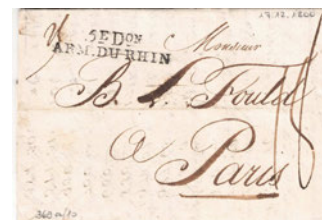 17.12.1800
5E DON
ARM.DU RHIN
Monsieur
B. L. Fould
a
Paris